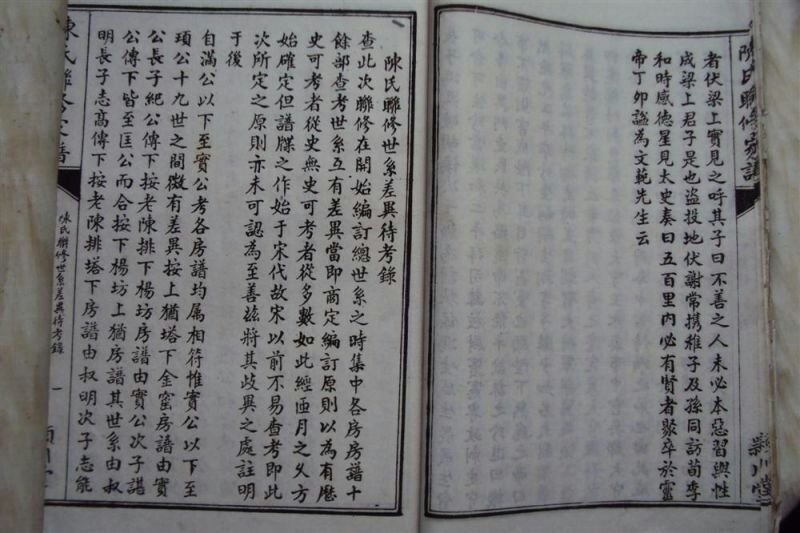 陳氏聯修家譜
者伏梁上實見之呼其子曰不善之人未必本惡習與性
成梁上君子是也盜投地伏謝常携稚子及孫同訪荀季
和時感德星見太史奏曰五百里內必有賢者聚卒於靈
帝丁卯諡為文範先生云
潁川堂
陳氏聯修世系差異待考錄
查此次聯修在開始編訂總世系之時集中各房房譜十
餘部查考世系互有差異當即商定編訂原則以為有歷
史可考者從史無史可考者從多數如此經匝月之久方
始確定但譜牒之作始于宋代故宋以前不易查考即此
次所定之原則亦未可認為至善茲將其歧異之處註明
于後
自滿公以下至實公考各房譜均屬相符惟實公以下至
頊公十九世之間微有差異按上猶塔下金窰房譜由實
公長子紀公傳下按老陳排下楊坊房譜由實公次子諶
公傳下皆至匡公而合按下楊坊上猶房譜其世系由叔
明長子志高傳下按老陳排塔下房譜由叔明次子志能
陳氏聯修家譜
陳氏聯修世系差異待考錄
一